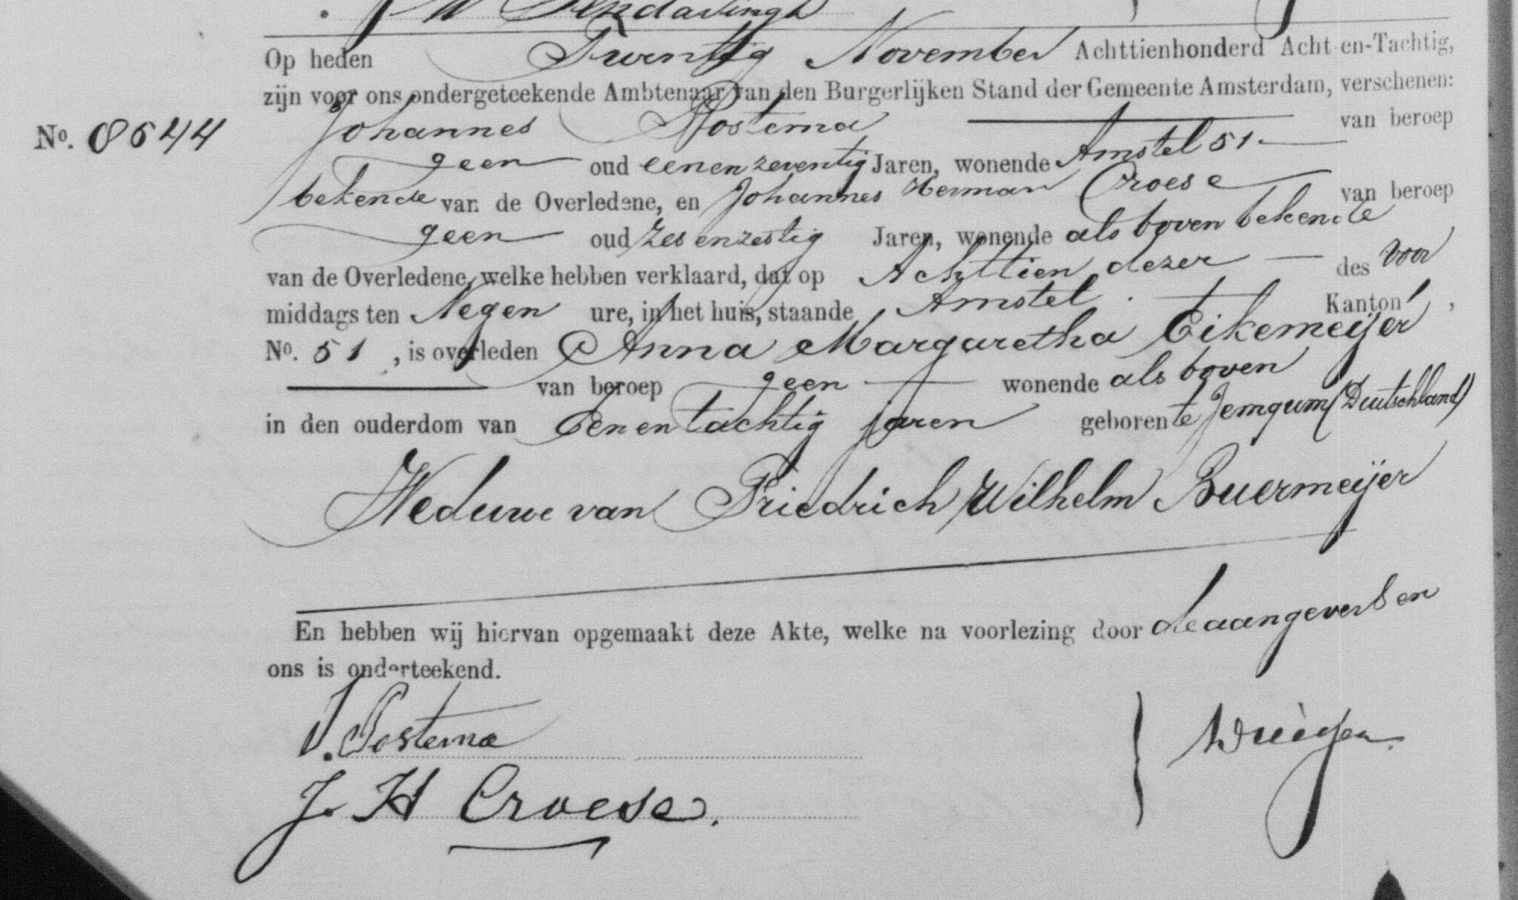 Op heden Twintig November Achttienhonderd Acht-en-Tachtig,
zijn voor ons ondergeteekende Ambtenaar van den Burgerlijken Stand der Gemeente Amsterdam, verschenen:
No. 8644 Johannes Postema van beroep
geen oud eenenzeventig Jaren, wonende Amstel 51
bekende van de Overledene, en Johannes Herman Croese van beroep
geen oud zesenzestig Jaren, wonende als boven bekende
van de Overledene, welke hebben verklaard, dat op Achttien dezer des voor
middags ten Negen ure, in het huis, staande Amstel Kanton ,
No. 51 , is overleden Anna Margaretha Eikemeijer
van beroep geen wonende als boven
in den ouderdom van Eenentachtig jaren geboren te Jemgum (Deutschland)
Weduwe van Friedrich Wilhelm Buermeijer
En hebben wij hiervan opgemaakt deze Akte, welke na voorlezing door de aangevers en
ons is onderteekend.
J. Postema
J. H Croese.